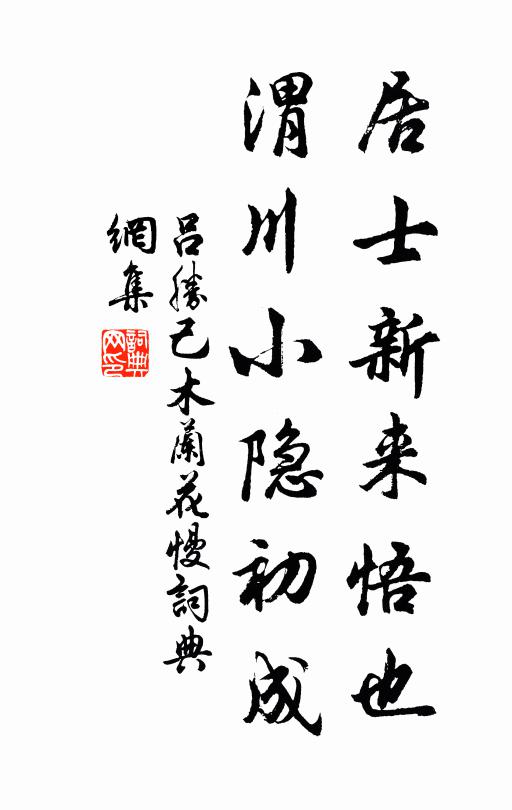 居士新来悟也
渭川小隐初成
吕勝己木蘭花慢詞典
網集
詞典
网印